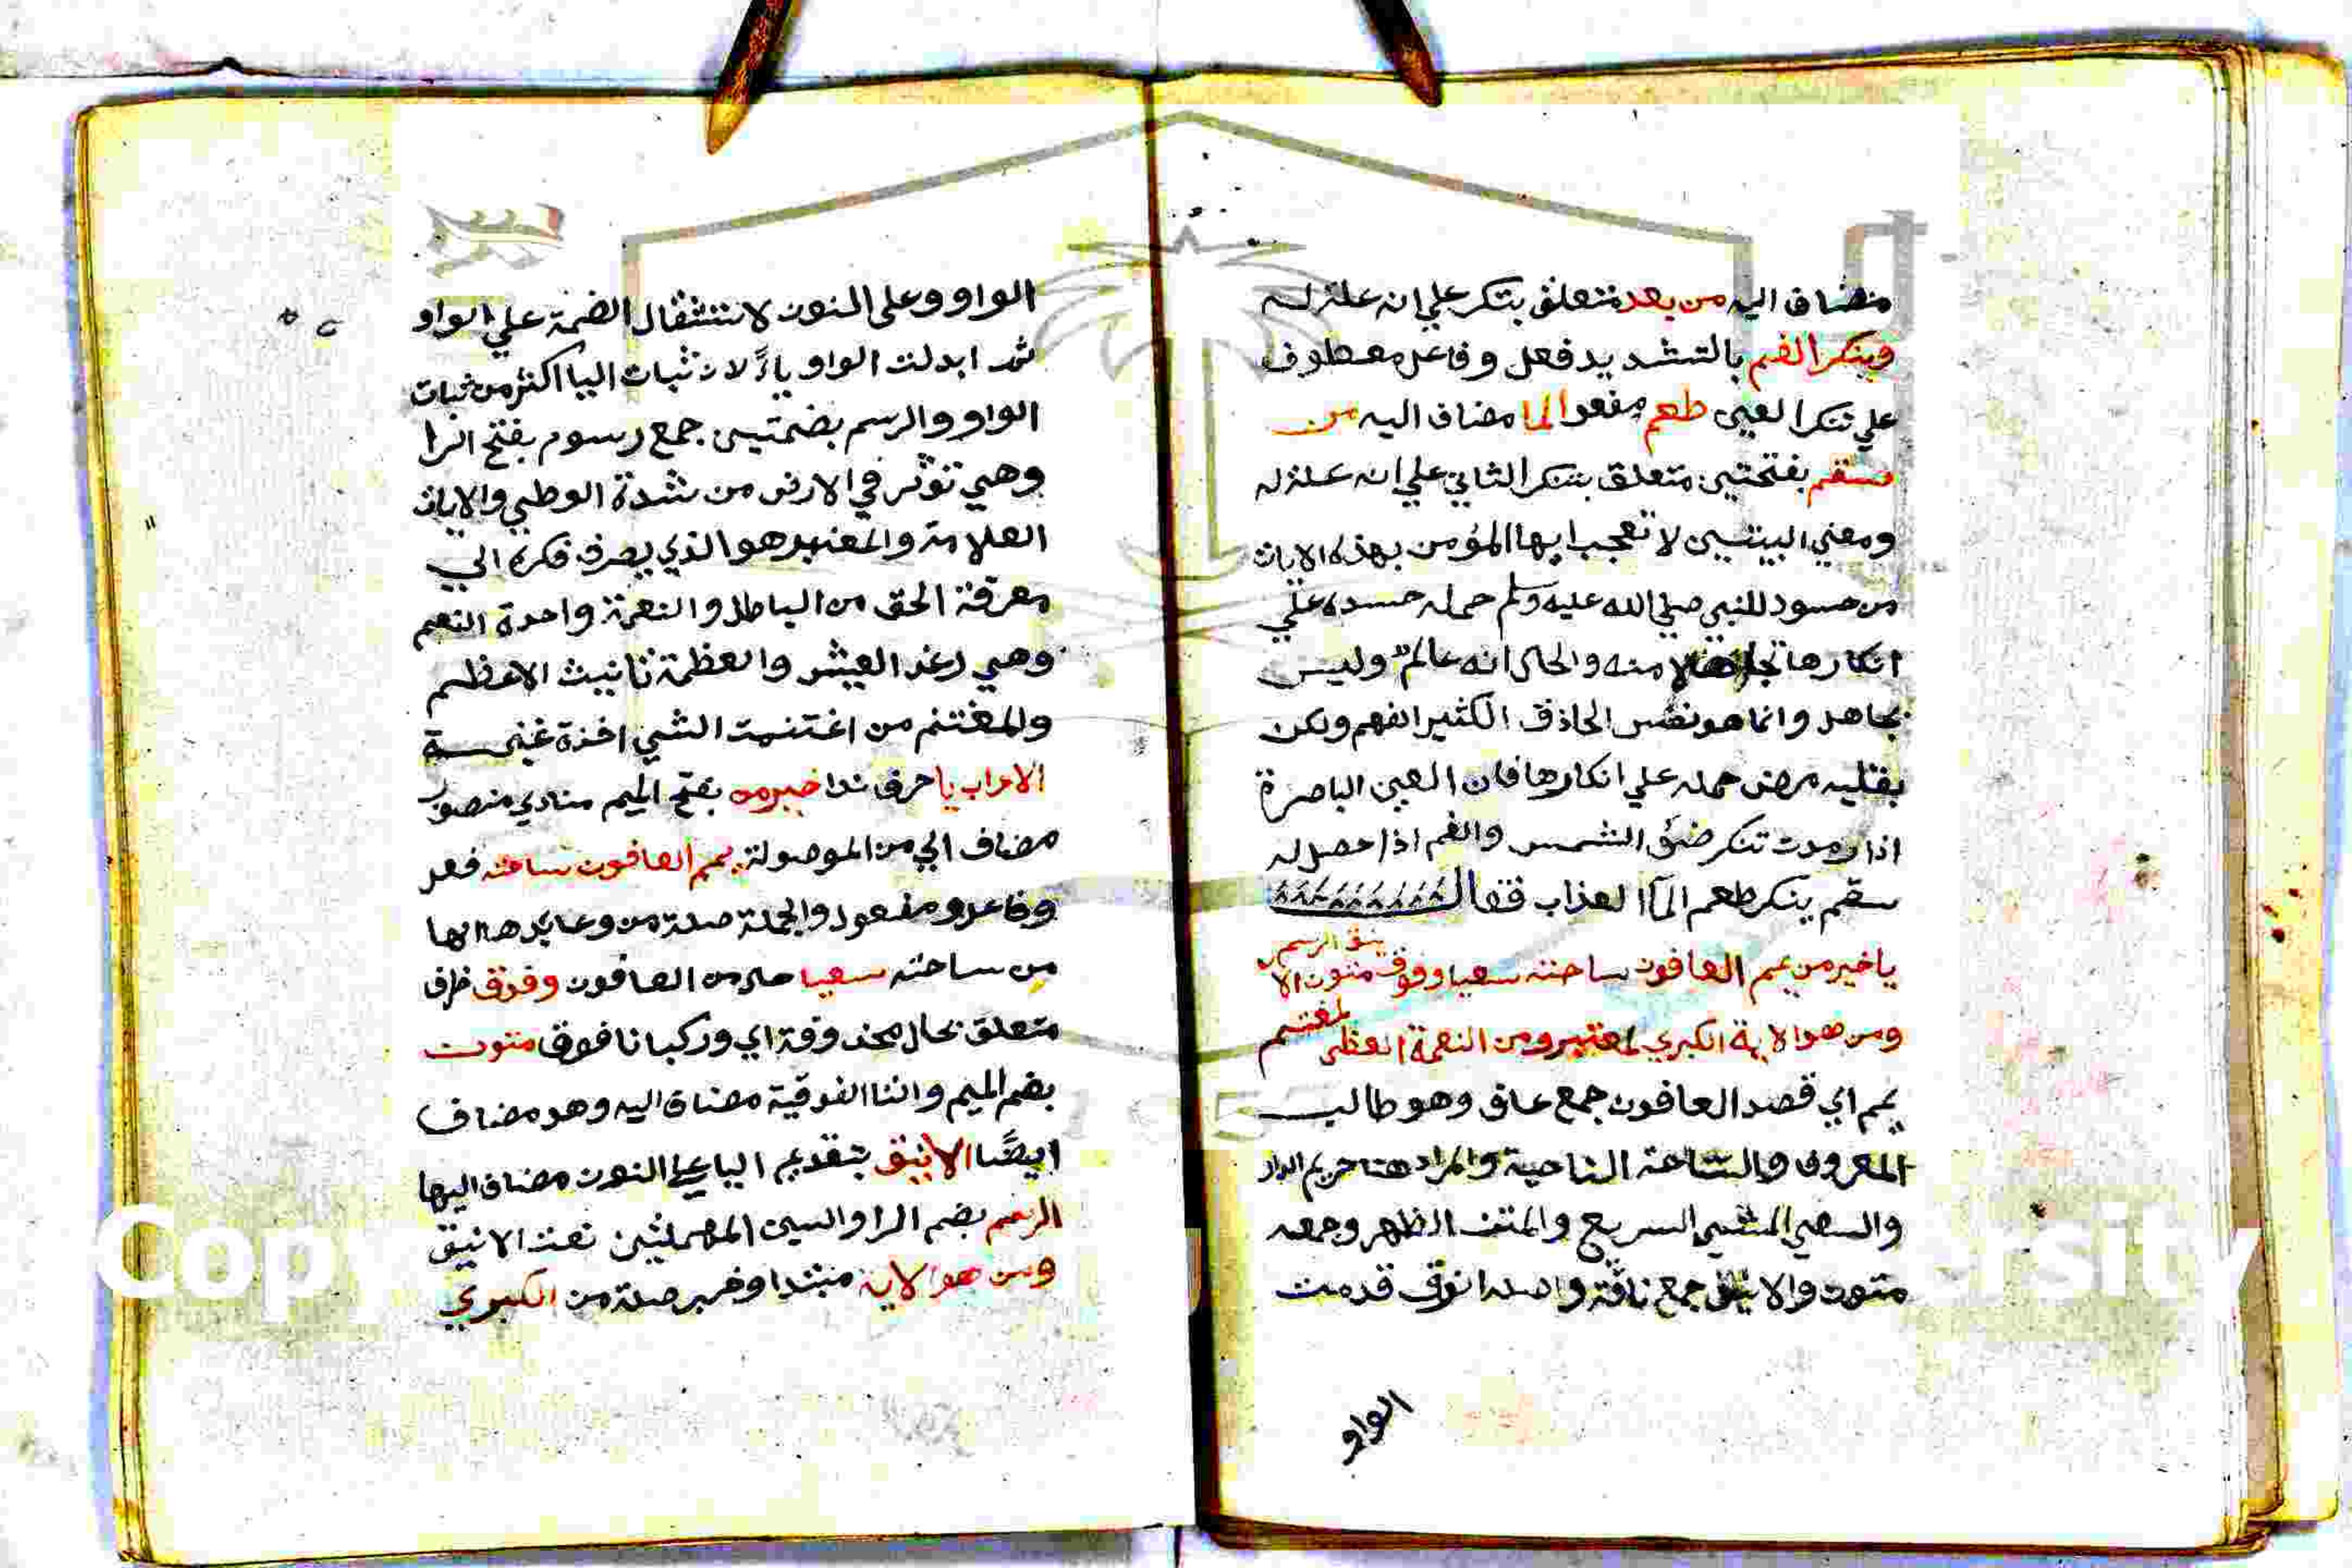 مضاف اليه من بعد متعلق بتنكر علي انه علة له
وينكر الفم بالتشديد فعل وفاعل معطوف
علي تنكر العين طعم مفعول الما مضاف اليه من
سقم بفتحتين متعلق بينكر الثاني علي انه علة له
ومعني البيتين لا تعجب ايها المؤمن بهذه الايات
من حسود للنبي صلي الله عليه وسلم حمله حسده علي
انكارها تجاهلا منه والحال انه عالم وليس
بجاهل وانما هو نفس الحاذق الكثير الفهم ولكن
بقلبه مرض حمله علي انكارها فان العين الباصرة
اذا رمدت تنكر ضؤ الشمس والفم اذا حصل له
سقم ينكر طعم المآ العذاب فقال
ياخير من يمم العافون ساحته سعيا وفوق متون الا ينق الرسم
ومن هو الاية الكبري لمعتبر ومن النعمة العظمى لمغتنم
يمم اي قصد العافون جمع عاف وهو طالب
المعروف والساحة الناحية والمراد هنا حريم الدار
والسعي المشي السريع والمتن الظهر وجمعه
متون والاينق جمع ناقة واصله انوق قدمت
الواو
الواو وعلى النون لاستثقال الضمة علي الواو
ثم ابدلت الواو ياءً لان ثبات اليا اكثر من ثبات
الواو والرسم بضمتين جمع رسوم بفتح الرا
وهي تؤثر في الارض من شدة الوطي والاية
العلامة والمعتبر هو الذي يصرف فكره الي
معرفة الحق من الباطل والنعمة واحدة النعم
وهي رغد العيش والعظمة تانيث الاعظم
والمغتنم من اغتنمت الشي اخذه غنيمة
الاعراب يا حرف ندا خير من بفتح الميم منادي منصوب
مضاف الي من الموصولة يمم العافون ساحته فعل
وفاعل ومفعول والجملة صلة من وعايدها الها
من ساحته سعيا حال من العافون وفوق ظرف
متعلق بحال محذوفة اي وركبانا فوق متون
بضم الميم والتا الفوقية مضاف اليه وهو مضاف
ايضًا الاينق بتقديم اليا علي النون مضاف اليها
الرسم بضم الرا والسين المهملتين نعت الاينق
ومن هو الاية مبتدا وخبر صلة من الكبري